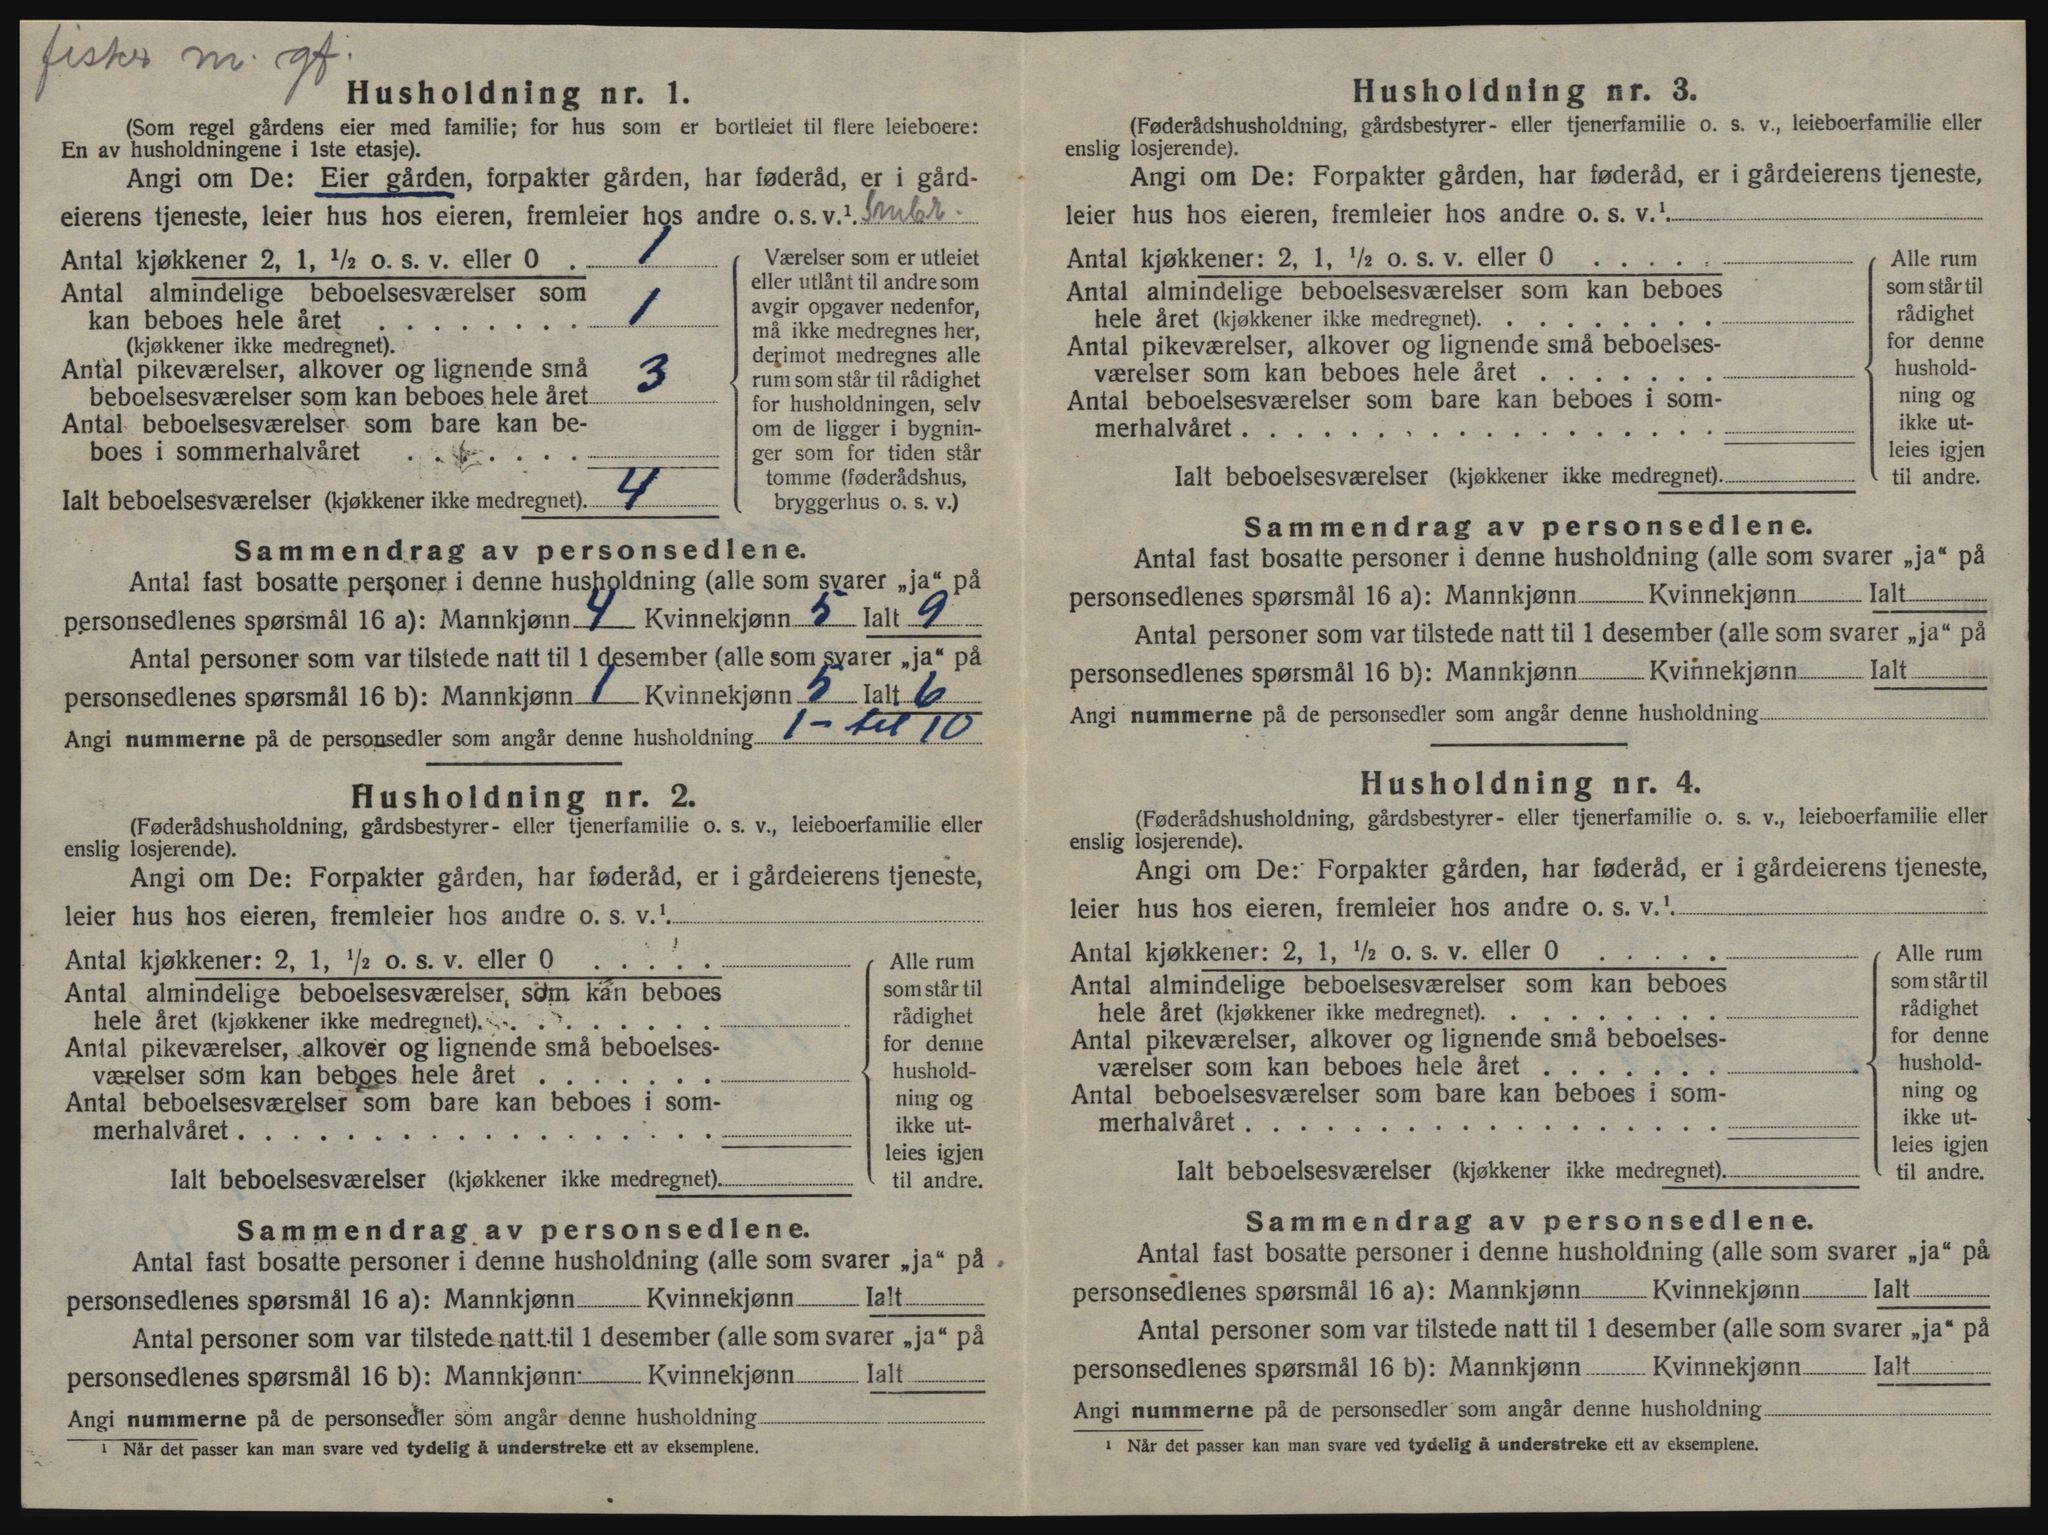 fisker m. gf.
Husholdning nr. 1.
(Som regel gårdens eier med familie; for hus som er bortleiet til flere leieboere:
En av husholdningene i 1ste etasje).
Angi om De: Eier gården, forpakter gården, har føderåd, er i gård-
eierens tjeneste, leier hus hos eieren, fremleier hos andre o. s. v.¹. Smbr.
Antal kjøkkener 2, 1, ½ o. s. v. eller 0 . 1
Antal almindelige beboelsesværelser som
kan beboes hele året . . . . . . . . 1
(kjøkkener ikke medregnet).
Antal pikeværelser, alkover og lignende små
beboelsesværelser som kan beboes hele året 3
Antal beboelsesværelser som bare kan be-
boes i sommerhalvåret . . . . . . .
Ialt beboelsesværelser (kjøkkener ikke medregnet). 4
Værelser som er utleiet
eller utlånt til andre som
avgir opgaver nedenfor,
må ikke medregnes her,
derimot medregnes alle
rum som står til rådighet
for husholdningen, selv
om de ligger i bygnin-
ger som for tiden står
tomme (føderådshus,
bryggerhus o. s. v.)
Sammendrag av personsedlene.
Antal fast bosatte personer i denne husholdning (alle som svarer „ja“ på
personsedlenes spørsmål 16 a): Mannkjønn 4 Kvinnekjønn 5 Ialt 9
Antal personer som var tilstede natt til 1 desember (alle som svarer „ja“ på
personsedlenes spørsmål 16 b): Mannkjønn 1 Kvinnekjønn 5 Ialt 6
Angi nummerne på de personsedler som angår denne husholdning 1 - til 10
Husholdning nr. 2.
(Føderådshusholdning, gårdsbestyrer- eller tjenerfamilie o. s. v., leieboerfamilie eller
enslig losjerende).
Angi om De: Forpakter gården, har føderåd, er i gårdeierens tjeneste,
leier hus hos eieren, fremleier hos andre o. s. v.¹.
Antal kjøkkener: 2, 1, ½ o. s. v. eller 0 . . . . .
Antal almindelige beboelsesværelser som kan beboes
hele året (kjøkkener ikke medregnet). . . . . . . . .
Antal pikeværelser, alkover og lignende små beboelses-
værelser som kan beboes hele året . . . . . . .
Antal beboelsesværelser som bare kan beboes i som-
merhalvåret . . . . . . . . . . . . . . . . . .
Ialt beboelsesværelser (kjøkkener ikke medregnet).
Alle rum
som står til
rådighet
for denne
hushold-
ning og
ikke ut-
leies igjen
til andre.
Sammendrag av personsedlene.
Antal fast bosatte personer i denne husholdning (alle som svarer „ja“ på
personsedlenes spørsmål 16 a): Mannkjønn Kvinnekjønn Ialt
Antal personer som var tilstede natt til 1 desember (alle som svarer „ja“ på
personsedlenes spørsmål 16 b): Mannkjønn Kvinnekjønn Ialt
Angi nummerne på de personsedler som angår denne husholdning
¹ Når det passer kan man svare ved tydelig å understreke ett av eksemplene.
Husholdning nr. 3.
(Føderådshusholdning, gårdsbestyrer- eller tjenerfamilie o. s. v., leieboerfamilie eller
enslig losjerende).
Angi om De: Forpakter gården, har føderåd, er i gårdeierens tjeneste,
leier hus hos eieren, fremleier hos andre o. s. v.¹.
Antal kjøkkener: 2, 1, ½ o. s. v. eller 0 . . . . .
Antal almindelige beboelsesværelser som kan beboes
hele året (kjøkkener ikke medregnet). . . . . . . . .
Antal pikeværelser, alkover og lignende små beboelses-
værelser som kan beboes hele året . . . . . . .
Antal beboelsesværelser som bare kan beboes i som-
merhalvåret . . . . . . . . . . . . . . . . . .
Ialt beboelsesværelser (kjøkkener ikke medregnet).
Alle rum
som står til
rådighet
for denne
hushold-
ning og
ikke ut-
leies igjen
til andre.
Sammendrag av personsedlene.
Antal fast bosatte personer i denne husholdning (alle som svarer „ja“ på
personsedlenes spørsmål 16 a): Mannkjønn Kvinnekjønn Ialt
Antal personer som var tilstede natt til 1 desember (alle som svarer „ja“ på
personsedlenes spørsmål 16 b): Mannkjønn Kvinnekjønn Ialt
Angi nummerne på de personsedler som angår denne husholdning
Husholdning nr. 4.
(Føderådshusholdning, gårdsbestyrer- eller tjenerfamilie o. s. v., leieboerfamilie eller
enslig losjerende).
Angi om De: Forpakter gården, har føderåd, er i gårdeierens tjeneste,
leier hus hos eieren, fremleier hos andre o. s. v.¹.
Antal kjøkkener: 2, 1, ½ o. s. v. eller 0 . . . . .
Antal almindelige beboelsesværelser som kan beboes
hele året (kjøkkener ikke medregnet). . . . . . . . .
Antal pikeværelser, alkover og lignende små beboelses-
værelser som kan beboes hele året . . . . . . .
Antal beboelsesværelser som bare kan beboes i som-
merhalvåret . . . . . . . . . . . . . . . . . .
Ialt beboelsesværelser (kjøkkener ikke medregnet).
Alle rum
som står til
rådighet
for denne
hushold-
ning og
ikke ut-
leies igjen
til andre.
Sammendrag av personsedlene.
Antal fast bosatte personer i denne husholdning (alle som svarer „ja“ på
personsedlenes spørsmål 16 a): Mannkjønn Kvinnekjønn Ialt
Antal personer som var tilstede natt til 1 desember (alle som svarer „ja“ på
personsedlenes spørsmål 16 b): Mannkjønn Kvinnekjønn Ialt
Angi nummerne på de personsedler som angår denne husholdning
¹ Når det passer kan man svare ved tydelig å understreke ett av eksemplene.